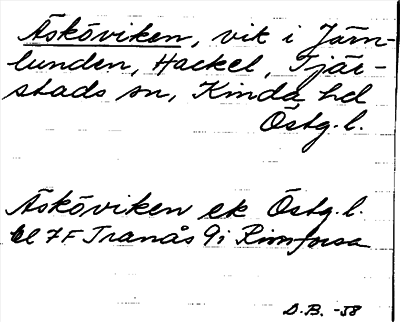 Äsköviken, vik i Järn-
lunden, Hackel, Tjär-
stads sn, Kinda hd
Östg. l.
Äsköviken ek Östg. l.
bl 7F Tranås 9i Rimforsa
D.B. -58